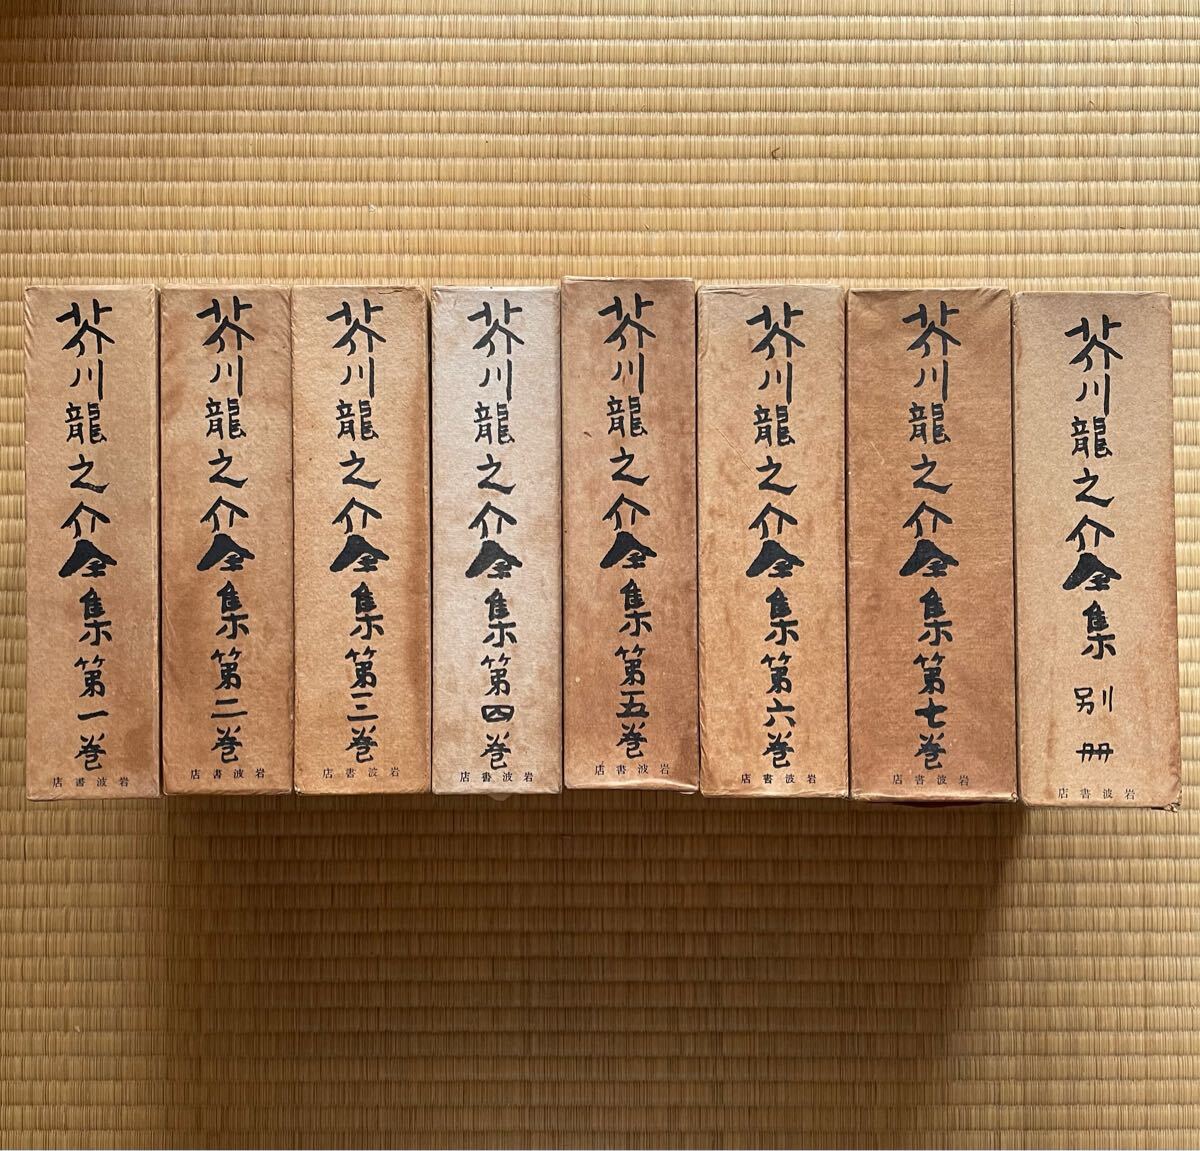 芥川龍之介全集第一巻
岩波書店
芥川龍之介全集第二巻
岩波書店
芥川龍之介全集第三巻
岩波書店
芥川龍之介全集第四巻
岩波書店
芥川龍之介全集第五巻
岩波書店
芥川龍之介全集第六巻
岩波書店
芥川龍之介全集第七巻
岩波書店
芥川龍之介全集 別冊
岩波書店